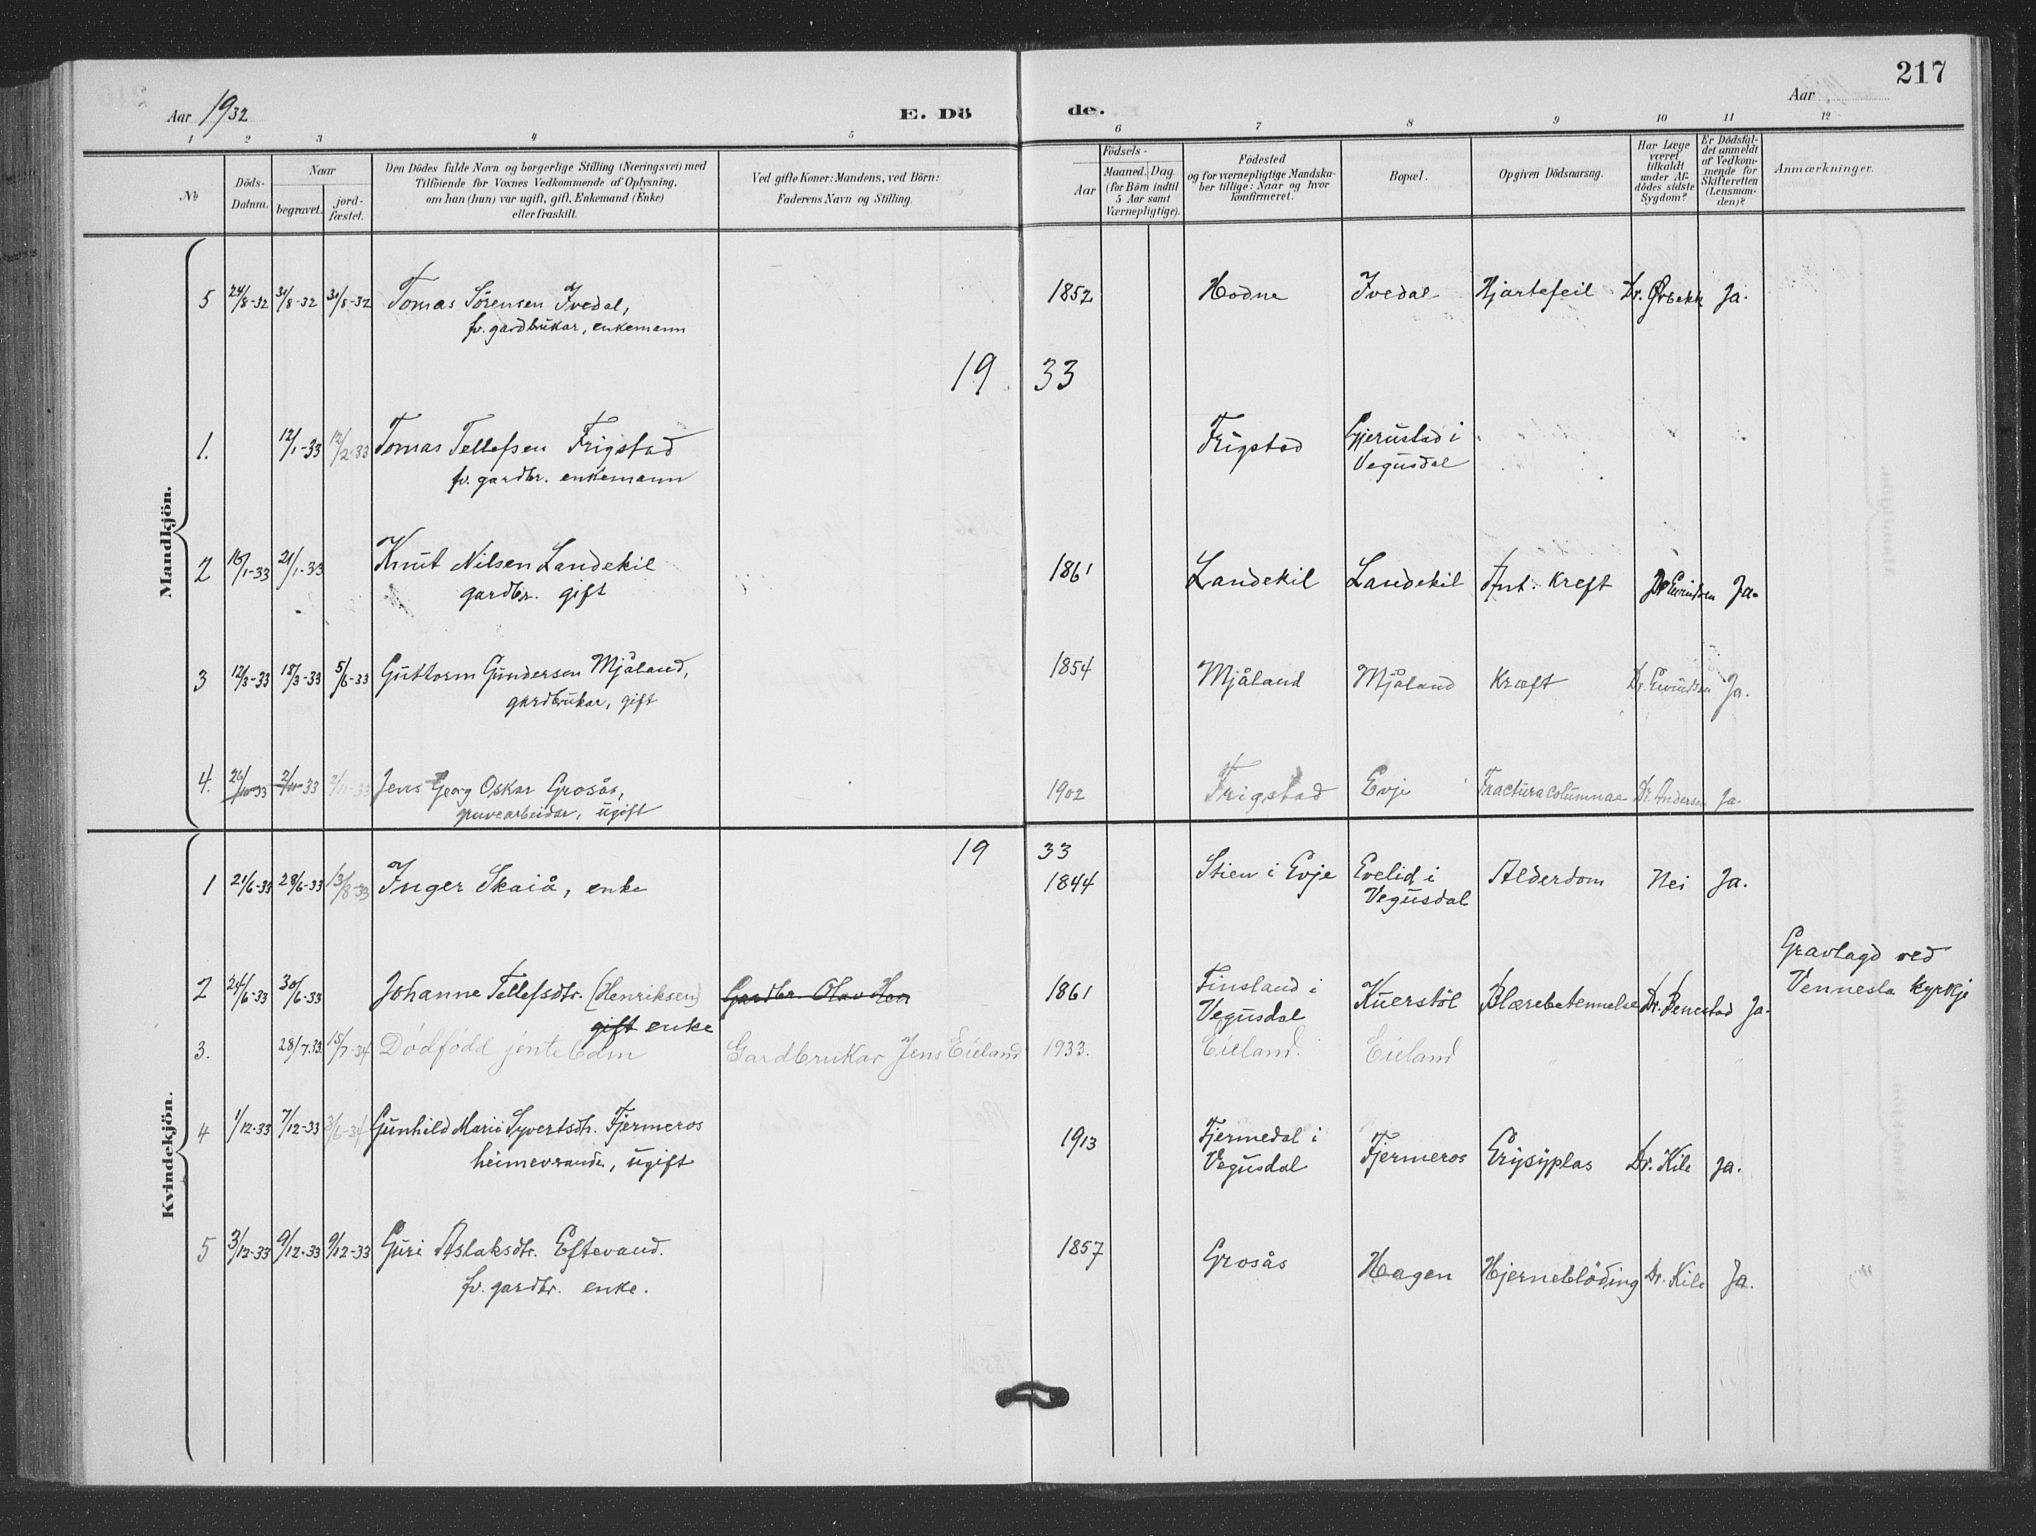 217
Aar 1932
E. Döde.
Aar
1 2 3 4 5 6 7 8 9 10 11 12
No
Döds-
Datum.
Naar
begravet.
jord-
fæstet.
Den Dödes fulde Navn og borgerlige Stilling (Næringsvei) med
Tilföiende for Voxnes Vedkommende af Oplysning,
om han (hun) var ugift, gift, Enkemand (Enke)
eller fraskilt.
Ved gifte Koner: Mandens, ved Börn:
Faderens Navn og Stilling.
Födsels-
Aar
Maaned. Dag.
(for Börn indtil
5 Aar samt
Værnepligtige).
Födested
og for værnepligtige Mandska-
ber tillige: Naar og hvor
konfirmeret.
Bopæl.
Opgiven Dödsaarsag.
Har Læge
været
tilkaldt
under Af-
dödes sidste
Sygdom?
Er Dödsfal-
det anmeldt
af Vedkom-
mende for
Skifteretten
(Lensman-
den)?
Anmærkninger.
Mandkjön.
5 24/8-32 31/8-32 31/8-32 Tomas Sörensen Ivedal, 1852 Hodne Ivedal Hjartefeil Dr. Örbekk Ja.
fv. gardbrukar, enkemann
19 33
1. 12/1-33 12/2-33 Tomas Tellefsen Frigstad Frigstad Gjerustad i
fv. gardbr. enkemann Vegusdal
2 16/1-33 21/1-33 Knut Nilsen Landekil 1861 Landekil Landekil Ant. kreft Dr Eivindsen Ja.
gardbr. gift
3 12/3-33 18/3-33 5/6-33 Guttorm Gundersen Mjåland, 1854 Mjåland Mjåland Kræft Dr. Eivindsen Ja.
gardbrukar, gift
4. 33 33 33 Jens Georg Oskar Grosås, 1902 Frigstad Evje Fractura columnae Dr. Andersen Ja.
gruvearbeidar, ugift
Kvindekjön.
19 33
1 21/6-33 28/6-33 13/8-33 Inger Skaiå, enke 1844 Stien i Evje Evelid i Alderdom Nei Ja.
Vegusdal
2 24/6-33 30/6-33 Johanne Tellefsdtr. (Henriksen) Gardbr. Olav Hen 1861 Finsland i Kuerstöl Blærebetennelse Dr. Benestad Ja. Gravlagd ved
gift enke Vegusdal Vennesla kyrkje
3. 28/7.33 15/7-34 Dödfödd jentebarn Gardbrukar Jens Eieland 1933. Eieland. Eieland
4 1/12-33 7/12-33 3/6-34 Gunhild Marie Syvertsdtr. Fjermeros 1913 Fjermedal i Fjermeros Erysyplas Dr. Kile Ja.
heimeverande, ugift Vegusdal
5 3/12-33 9/12-33 9/12-33 Guri Aslaksdtr. Eftevand. 1857 Grosås Hagen Hjerneblöding Dr. Kile Ja.
fv. gardbr. enke.